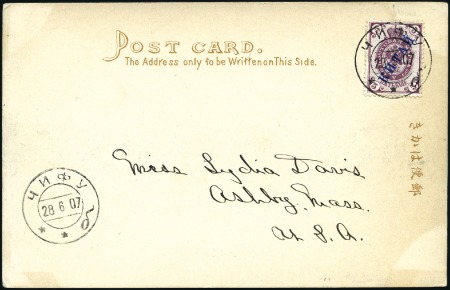 POST CARD.
The Address only to be Written on This Side.
ЧИФУ
КИТАЙ
5 5
郵便はかき
Miss Lydia Davis
Ashby, Mass.
U. S. A.
ЧИФУ
28 6 07